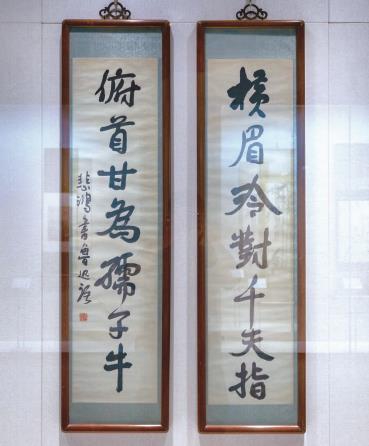 横眉冷對千夫指
俯首甘為孺子牛
悲鴻書魯迅